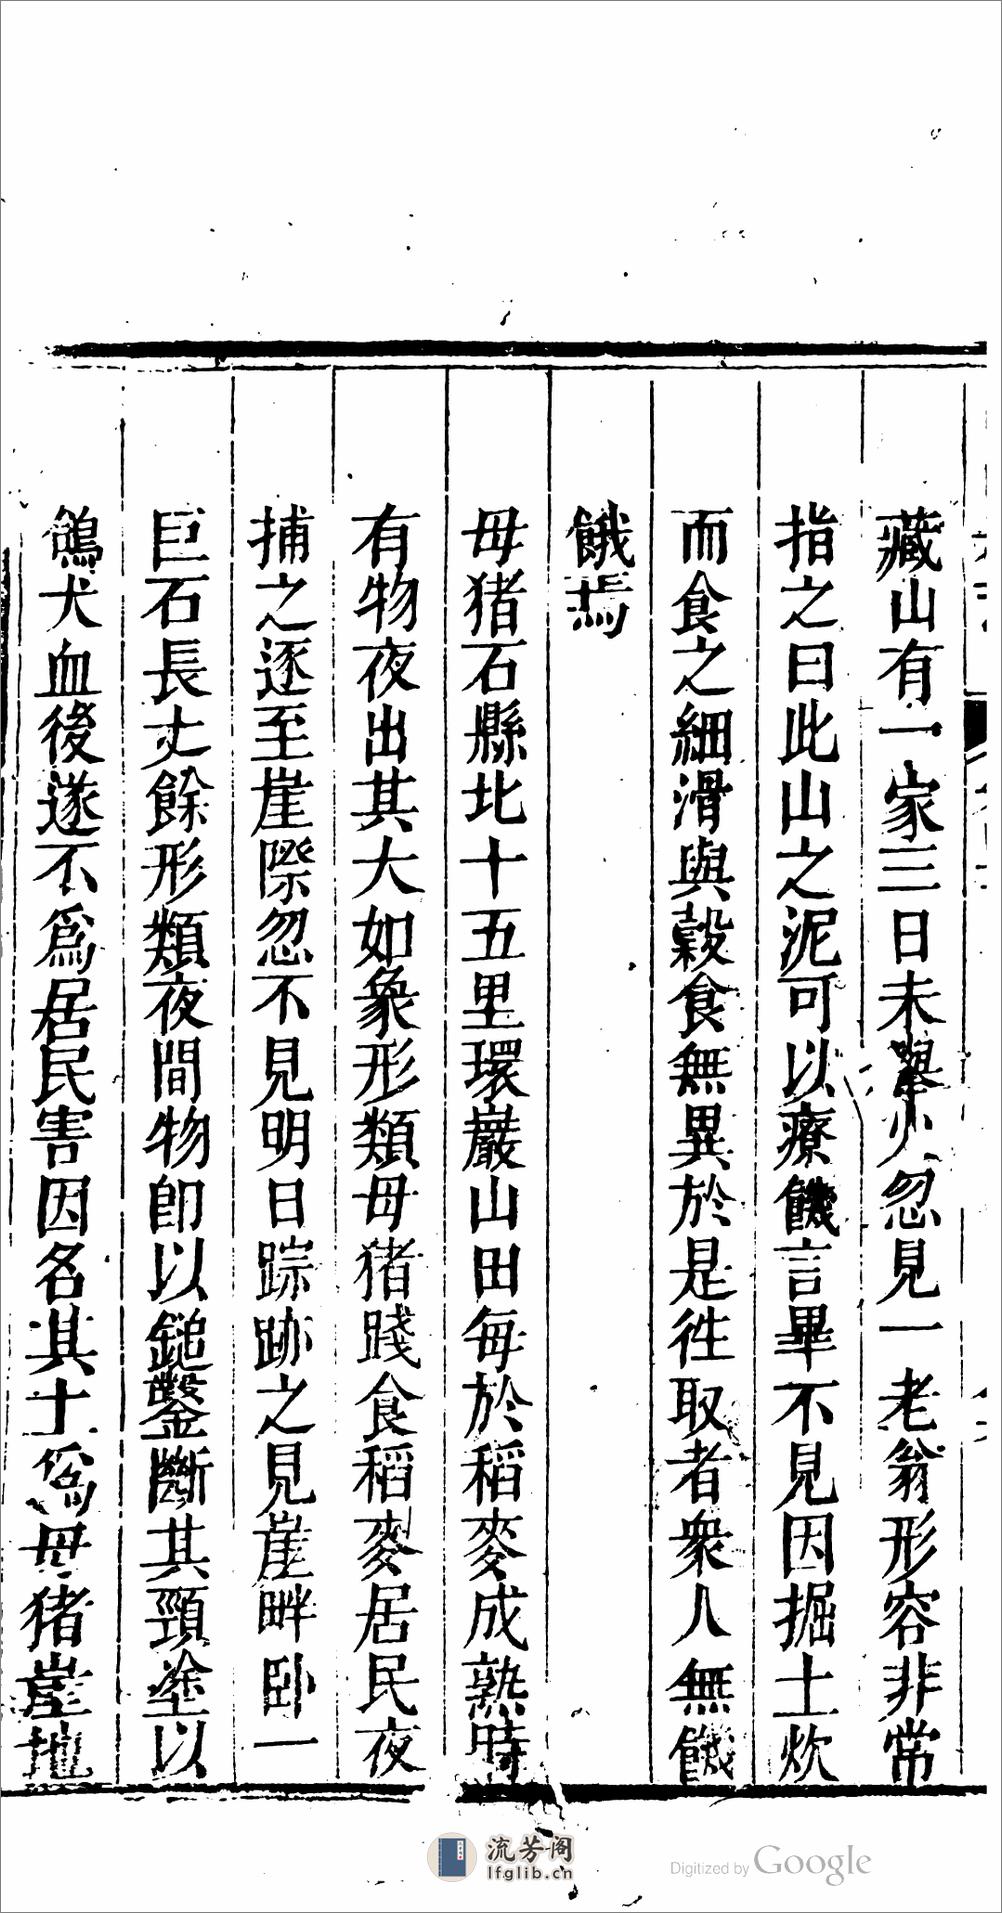 藏山有一家三日未舉火忽見一老翁形容非常
指之曰此山之泥可以療饑言畢不見因掘土炊
而食之細滑與穀食無異於是徃取者衆人無饑
餓焉
母猪石縣北十五里環巖山田每於稻麥成熟時
有物夜出其大如象形類母猪踐食稻麥居民夜
捕之逐至崖際忽不見明日踪跡之見崖畔卧一
巨石長丈餘形類夜間物卽以鎚鑿斷其頸塗以
鴿犬血後遂不爲居民害因名其土爲母猪崖地
流芳阁
lfglib.cn
Digitized by Google